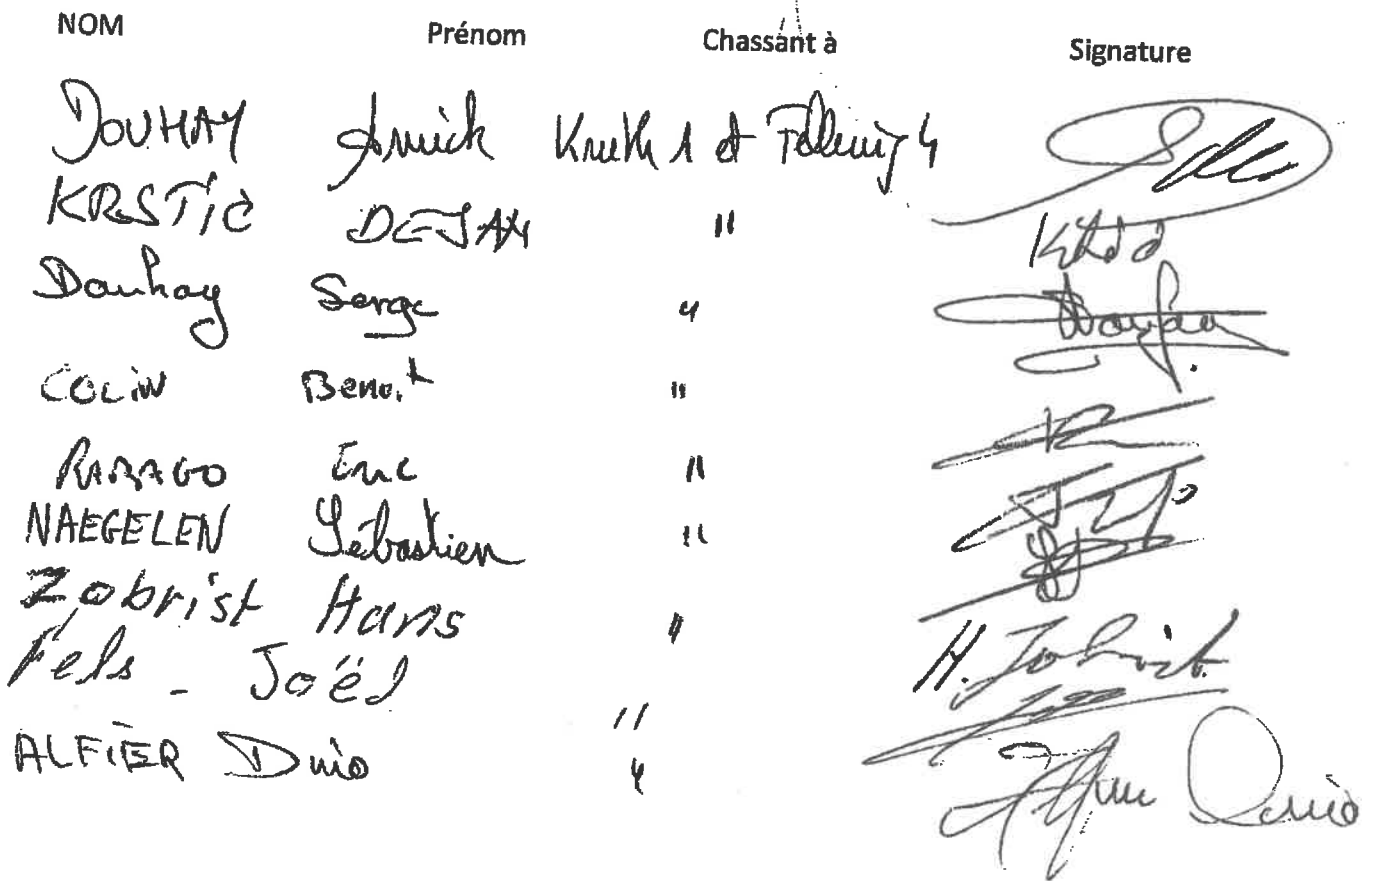 NOM Prénom Chassant à Signature
DOUHAY Annick Knuth 1 et 4
KRSTIC DEJAN "
Douhay Serge "
COLIN Benoit "
RARAGO Eric "
NAEGELEN Sébastien "
Zobrist Hans " H. Zobrist
Fels - Joël "
ALFIER Dino "